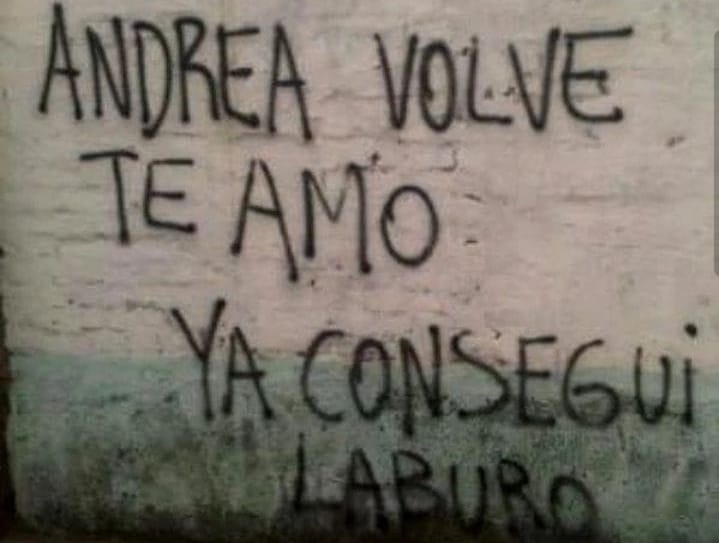 ANDREA VOLVE
TE AMO
YA CONSEGUi
LABURO